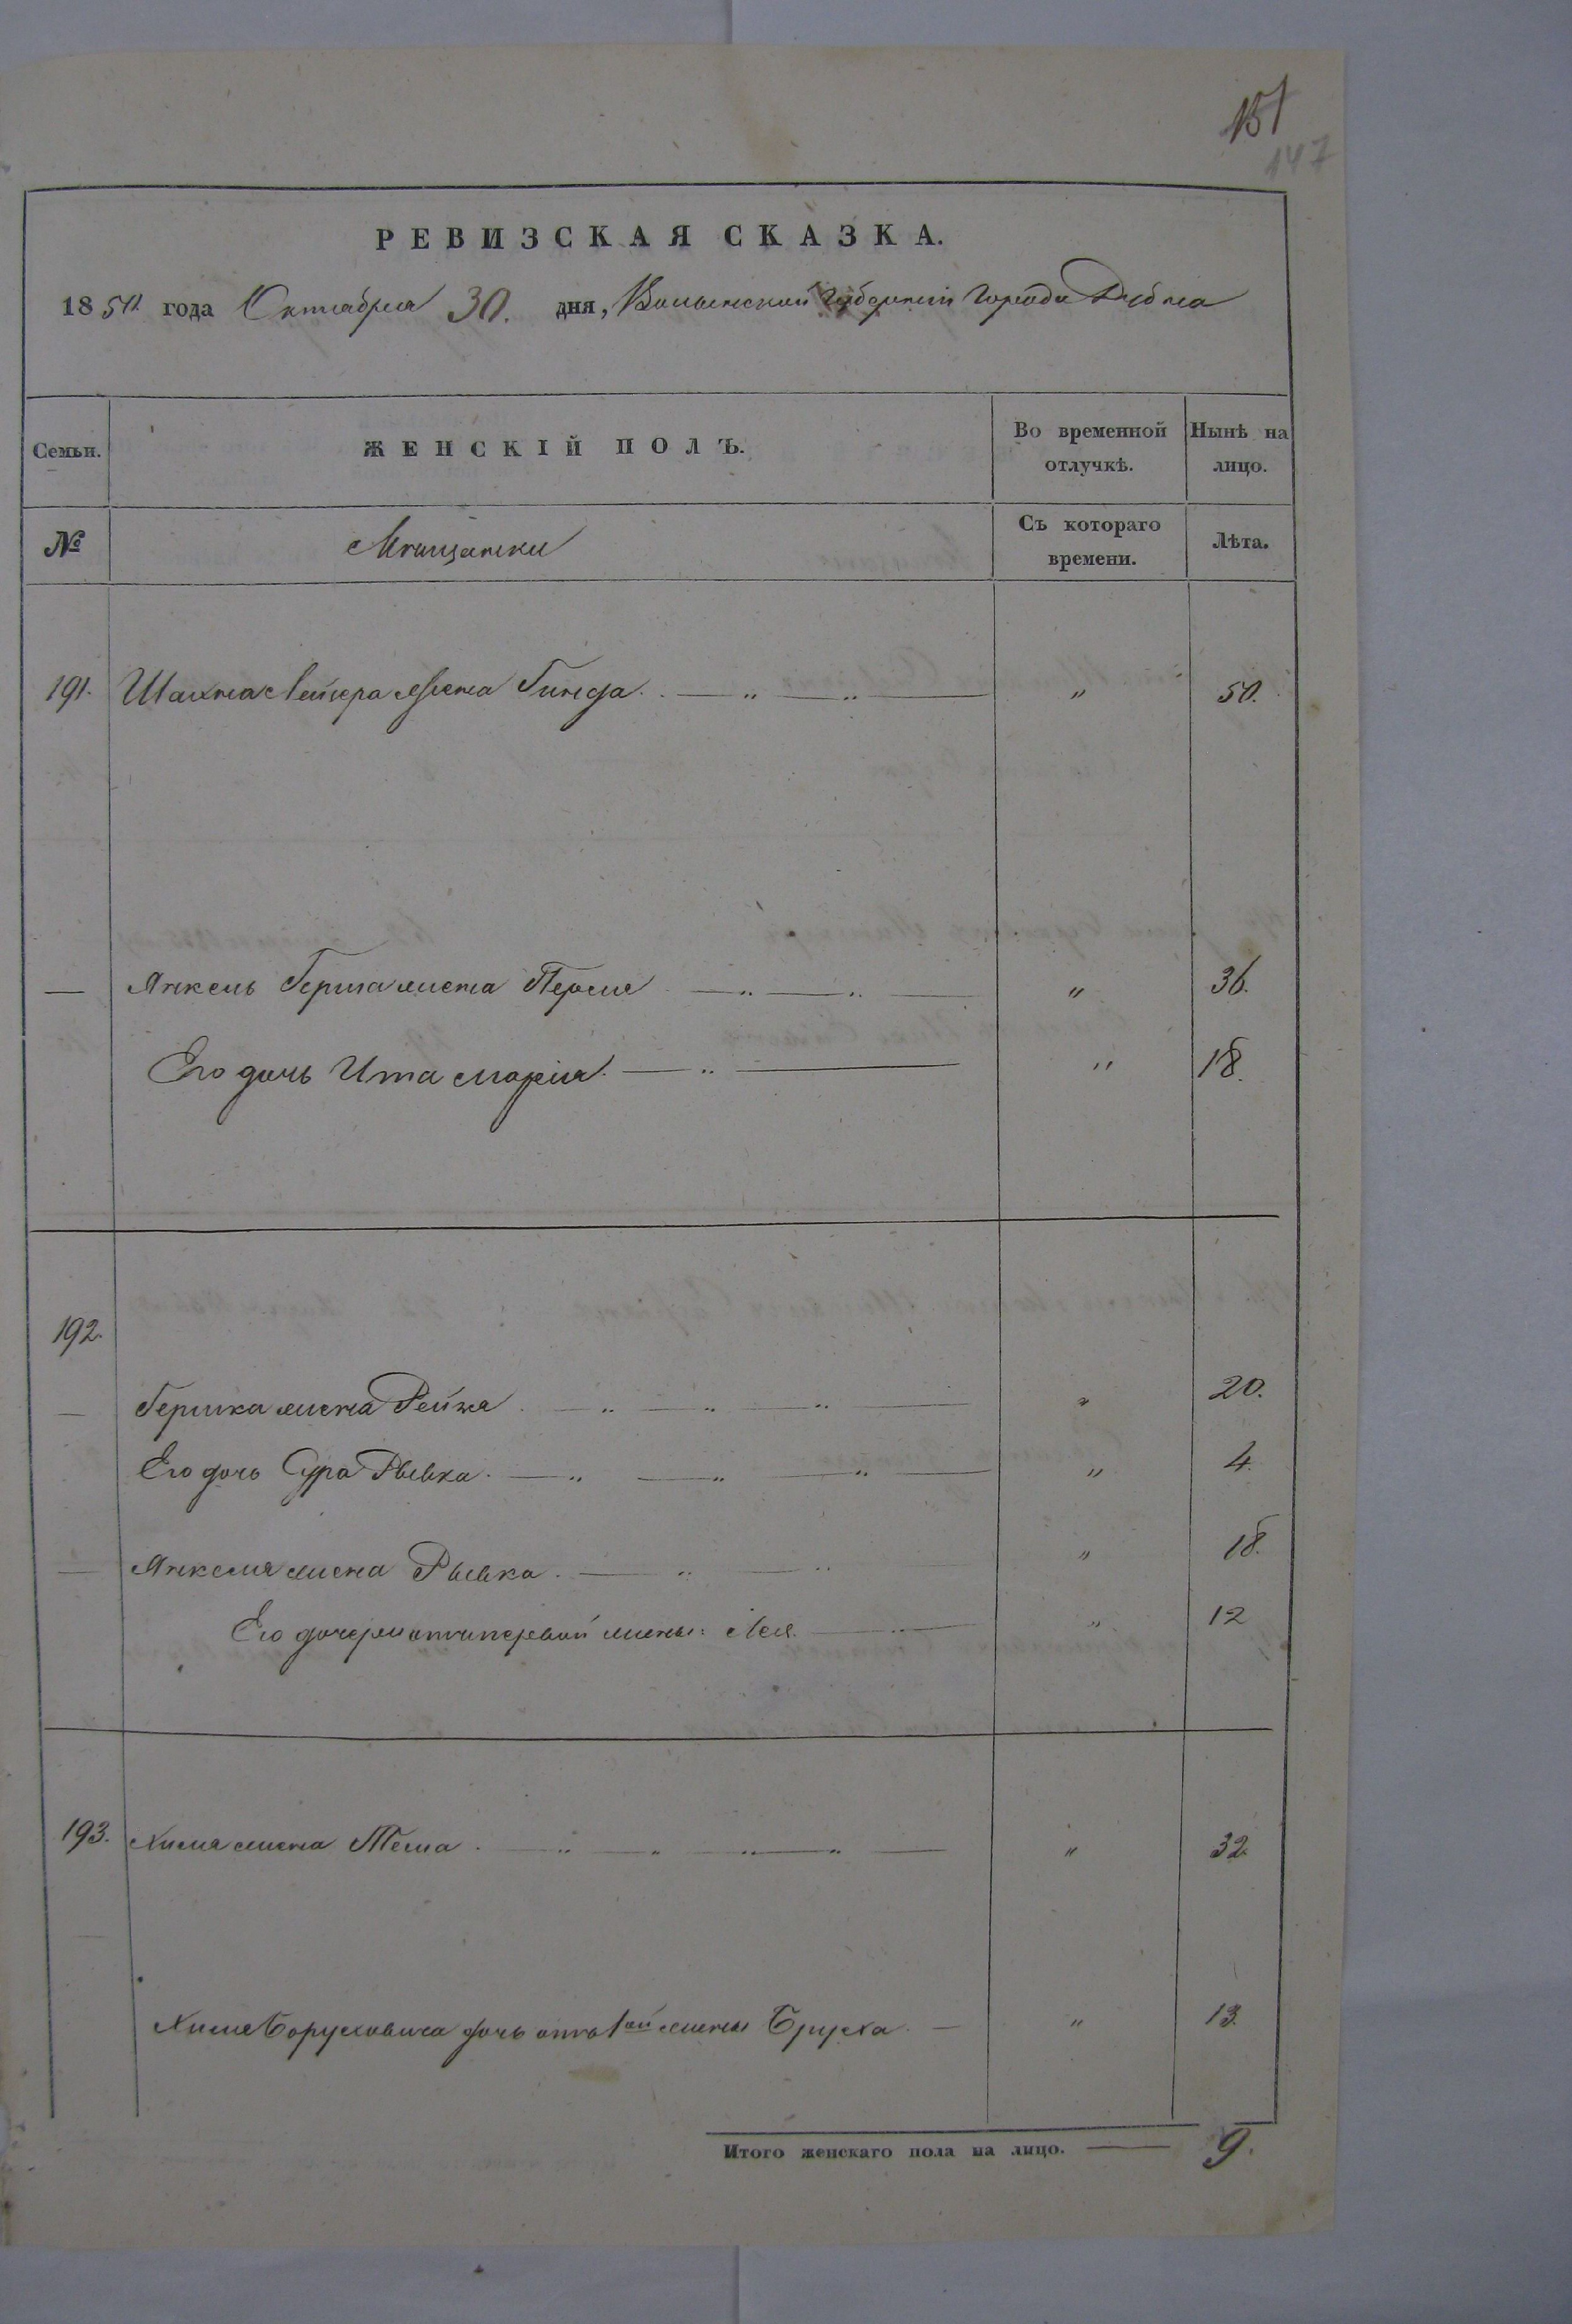 151
147
РЕВИЗСКАЯ СКАЗКА.
1850 года Октября 30. дня, Волынской Губерніи Города Дубна
Семьи. ЖЕНСКІЙ ПОЛЪ. Во временной отлучкѣ. Нынѣ на лицо.
№ Мѣщанки Съ котораго времени. Лѣта.
191. Шахна Лейзера жена Гинда. " 50.
— Янкель Герша жена Перля " 36.
Его дочь Ита Марія. " 18.
192.
— Гершка жена Рейзя. " 20.
Его дочь Сура Рывка. " 4.
— Янкеля жена Рывка. " 18.
Его дочери отъ первой жены: Лея. " 12
193. Хиля жена Теша. " 32.
Хиля Боруховича дочь отъ 1ой жены Бруха. " 13.
Итого женскаго пола на лицо. 9.